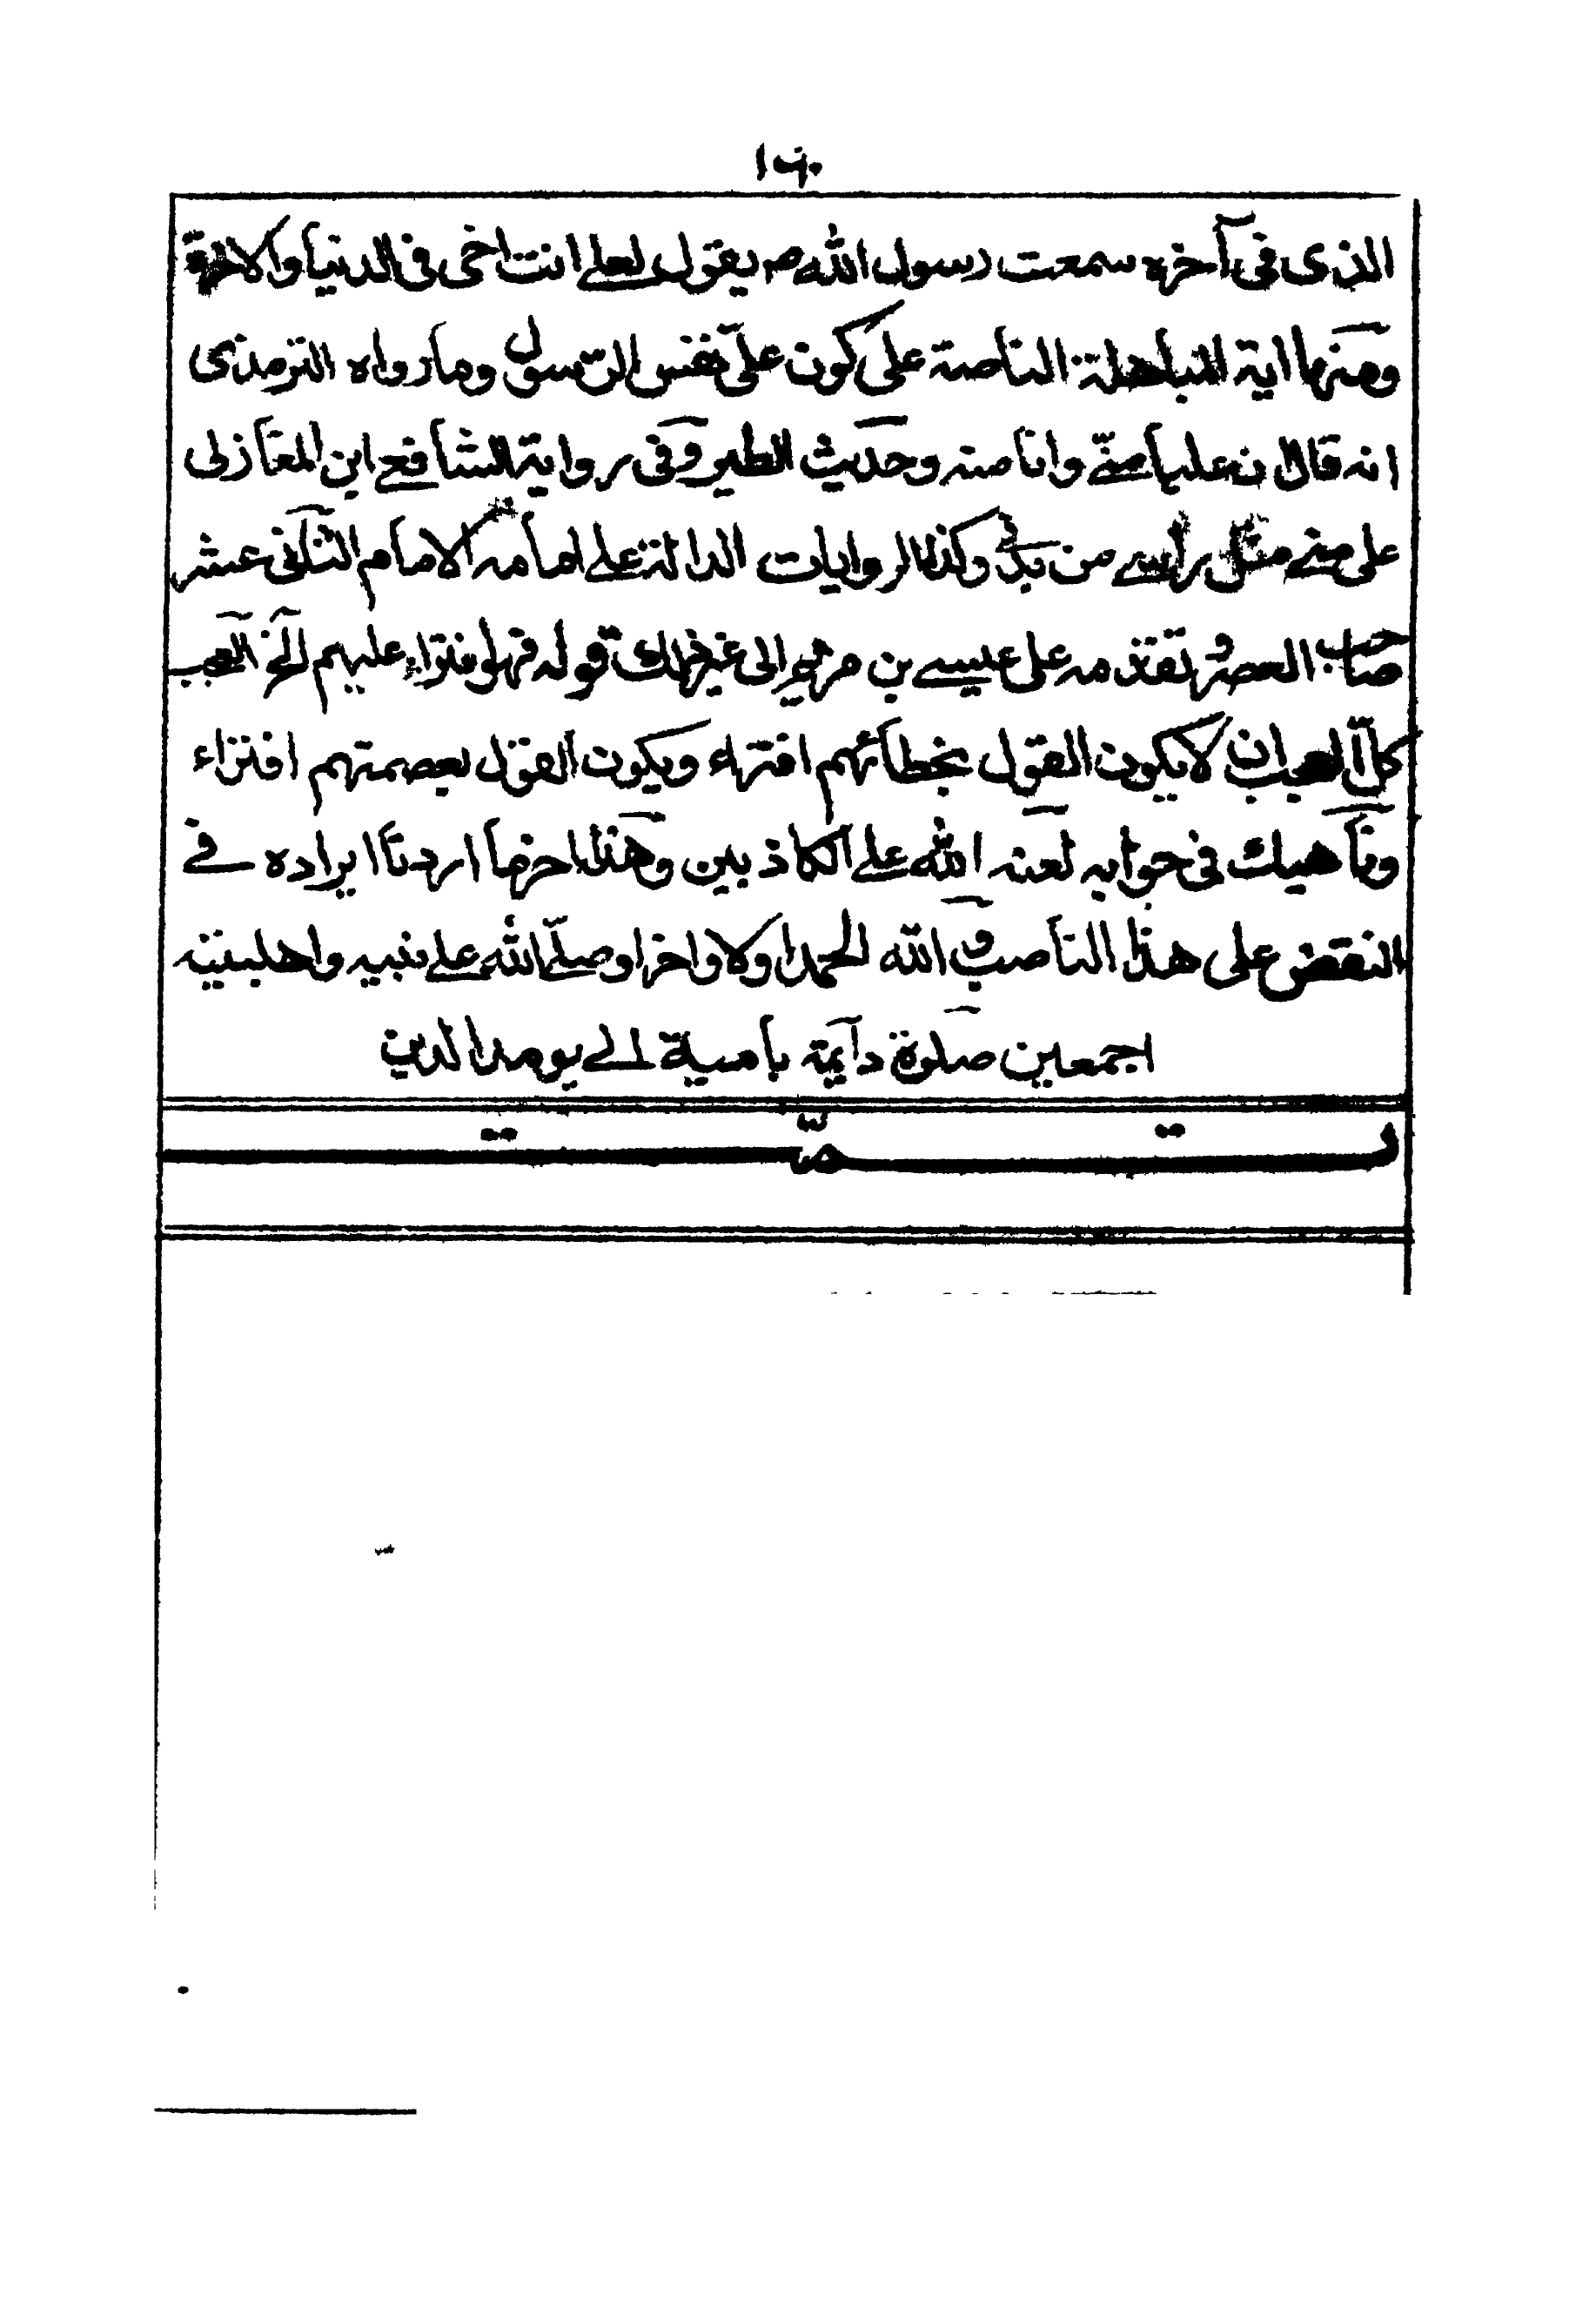 ١٦٠
الذى فى آخره سمعت رسول الله ص يقول لعلى انت اخى فى الدنيا والاخرة
ومنها اية المباهلة الناصة على كون على نفس الرسول وما رواه الترمذى
انه قال ان عليا منى وانا منه وحديث الطير وفى رواية الشافعى ابن المغازلى
على منى مثل رأسى من بدنى وكذا الروايات الدالة على امامه الامام الثانى عشر
صاحب العصر وتقدمه على عيسى بن مريم الى غير ذلك قوله فهلو افتراء عليهم الخ العجب
كل العجب ان لا يكون القول بخطائهم افتراء ويكون القول بعصمتهم افتراء
وناهيك فى جوابه لعنه الله على الكاذبين وهذا اخرما اردنا ايراده فى
النقض على هذا الناصب و الله الحمد اولا واخرا وصلى الله على نبيه واهلبيته
اجمعين صلوة دائمة باقية الى يوم الدين
تمت